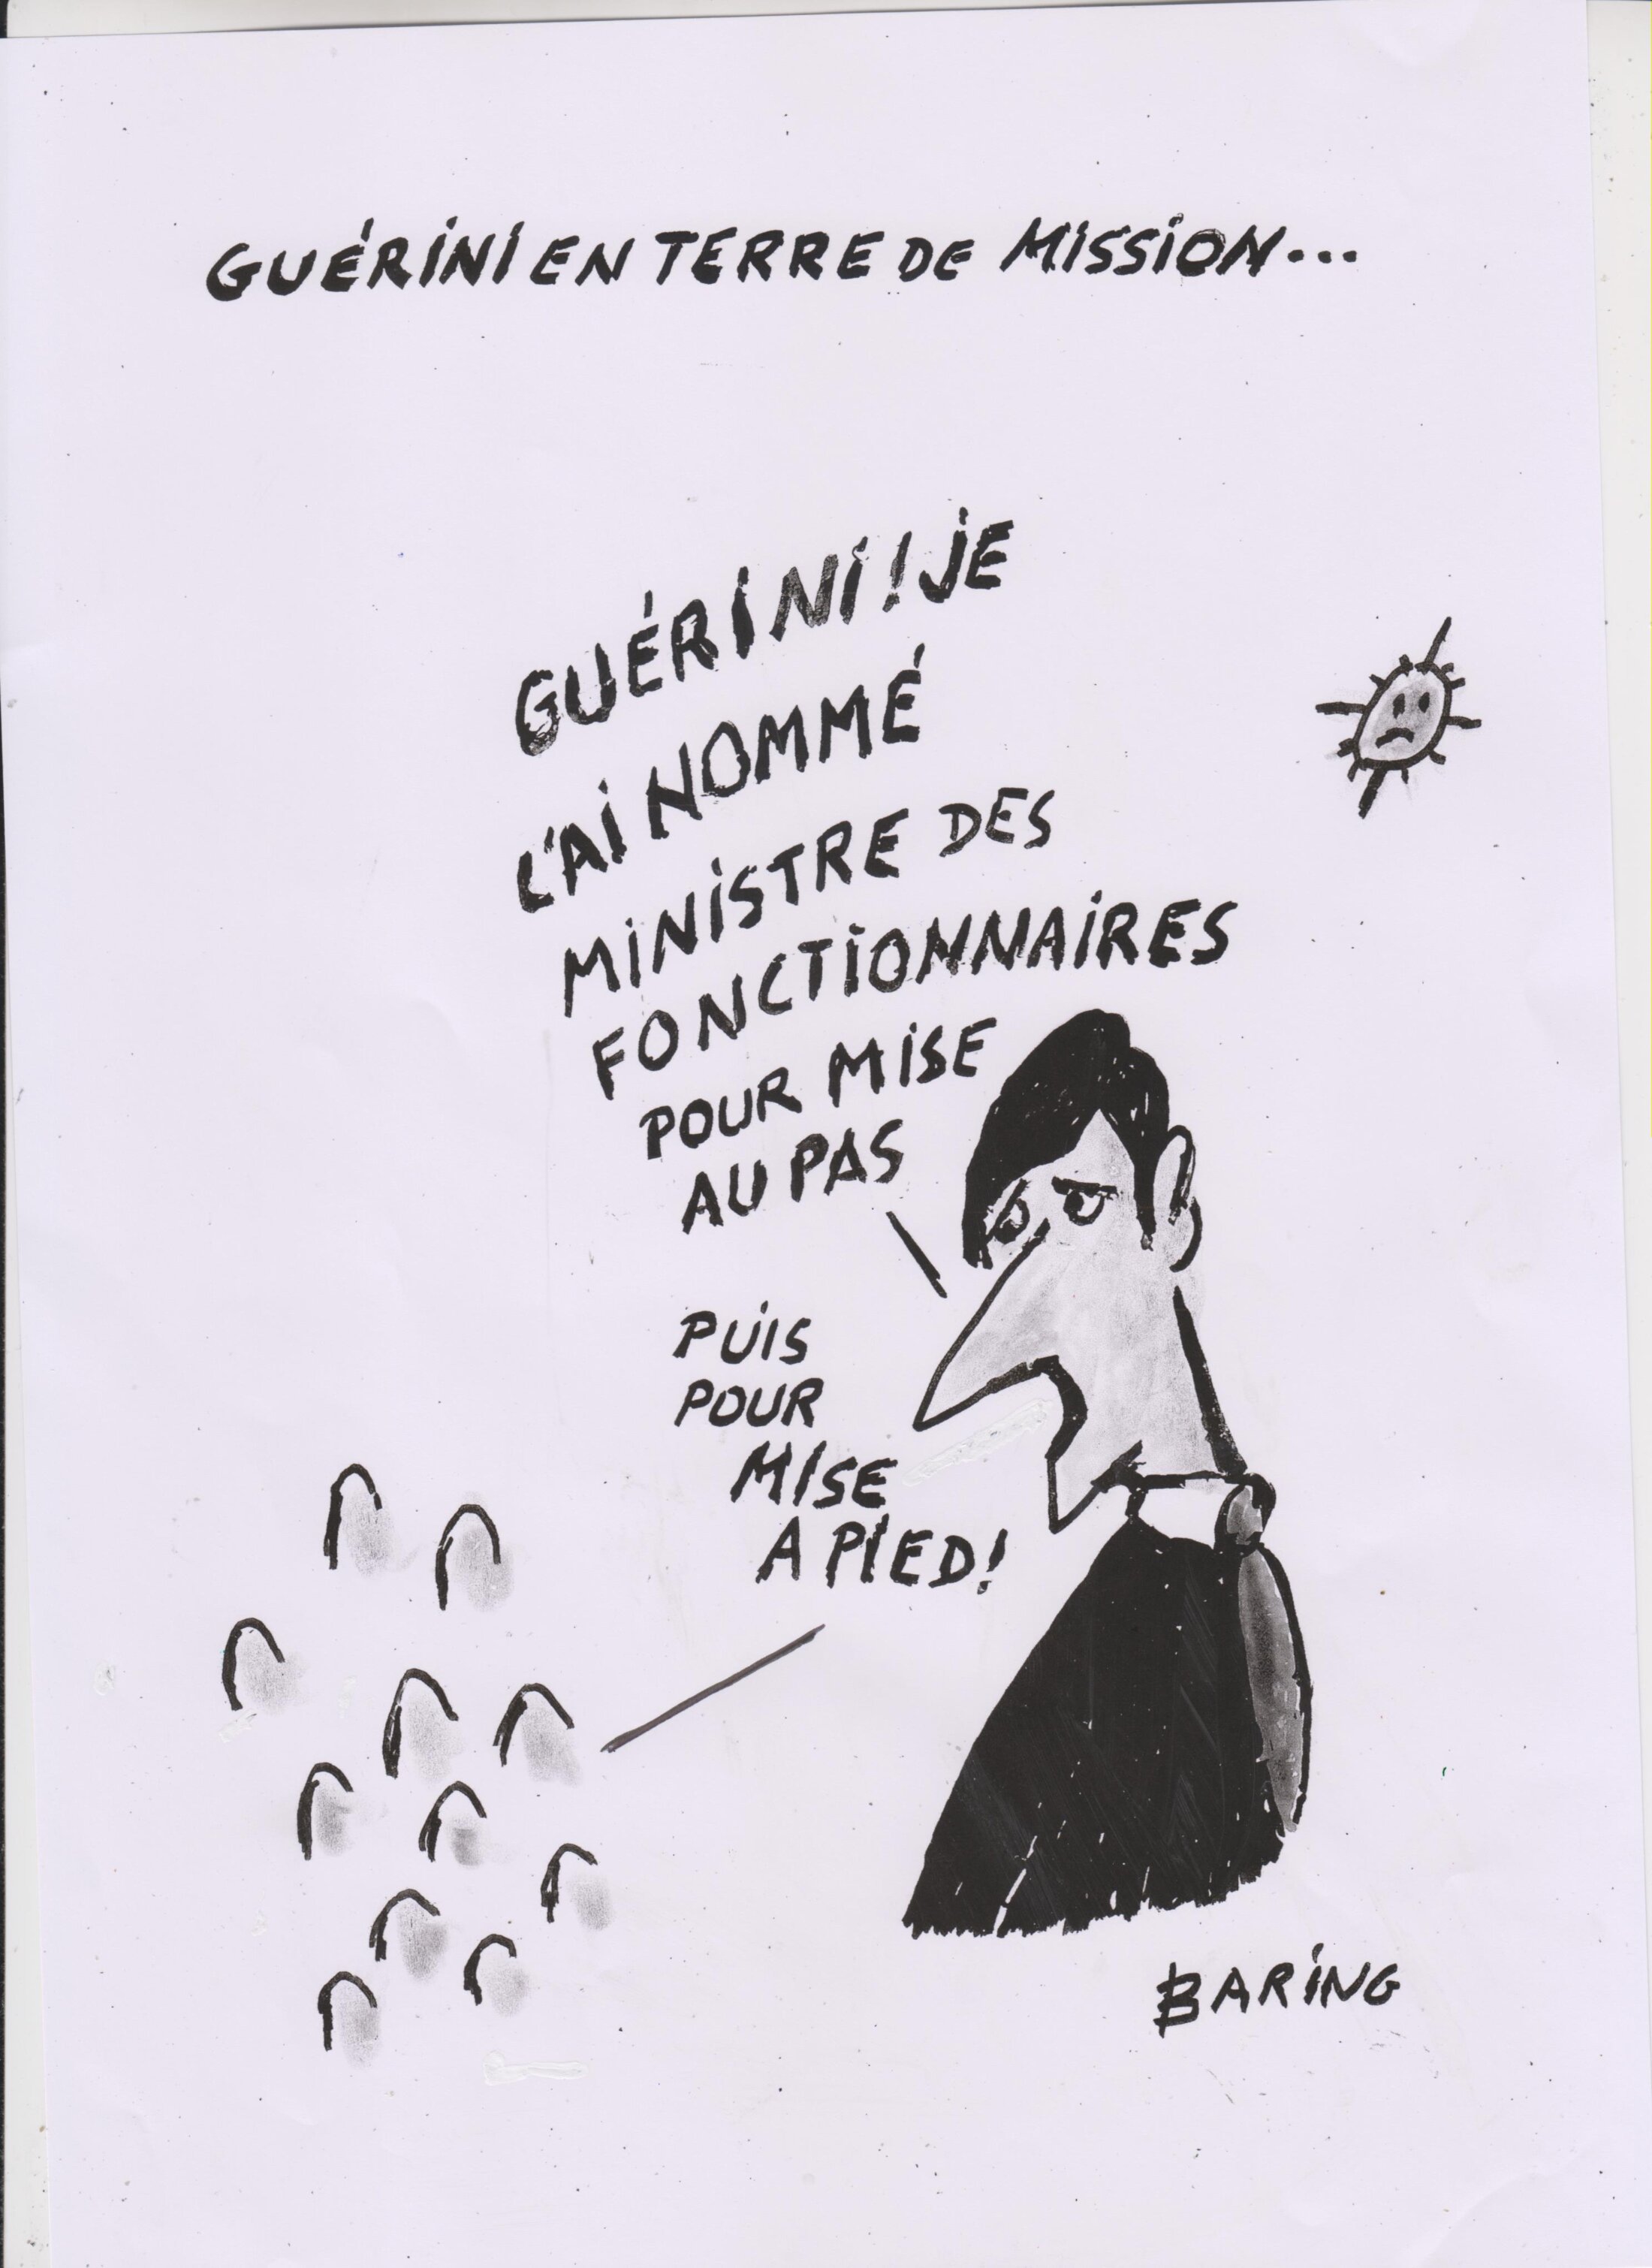 GUÉRINI EN TERRE DE MISSION...
GUÉRINI ! JE
L'AI NOMMÉ
MINISTRE DES
FONCTIONNAIRES
POUR MISE
AU PAS
PUIS
POUR
MISE
A PIED !
BARING